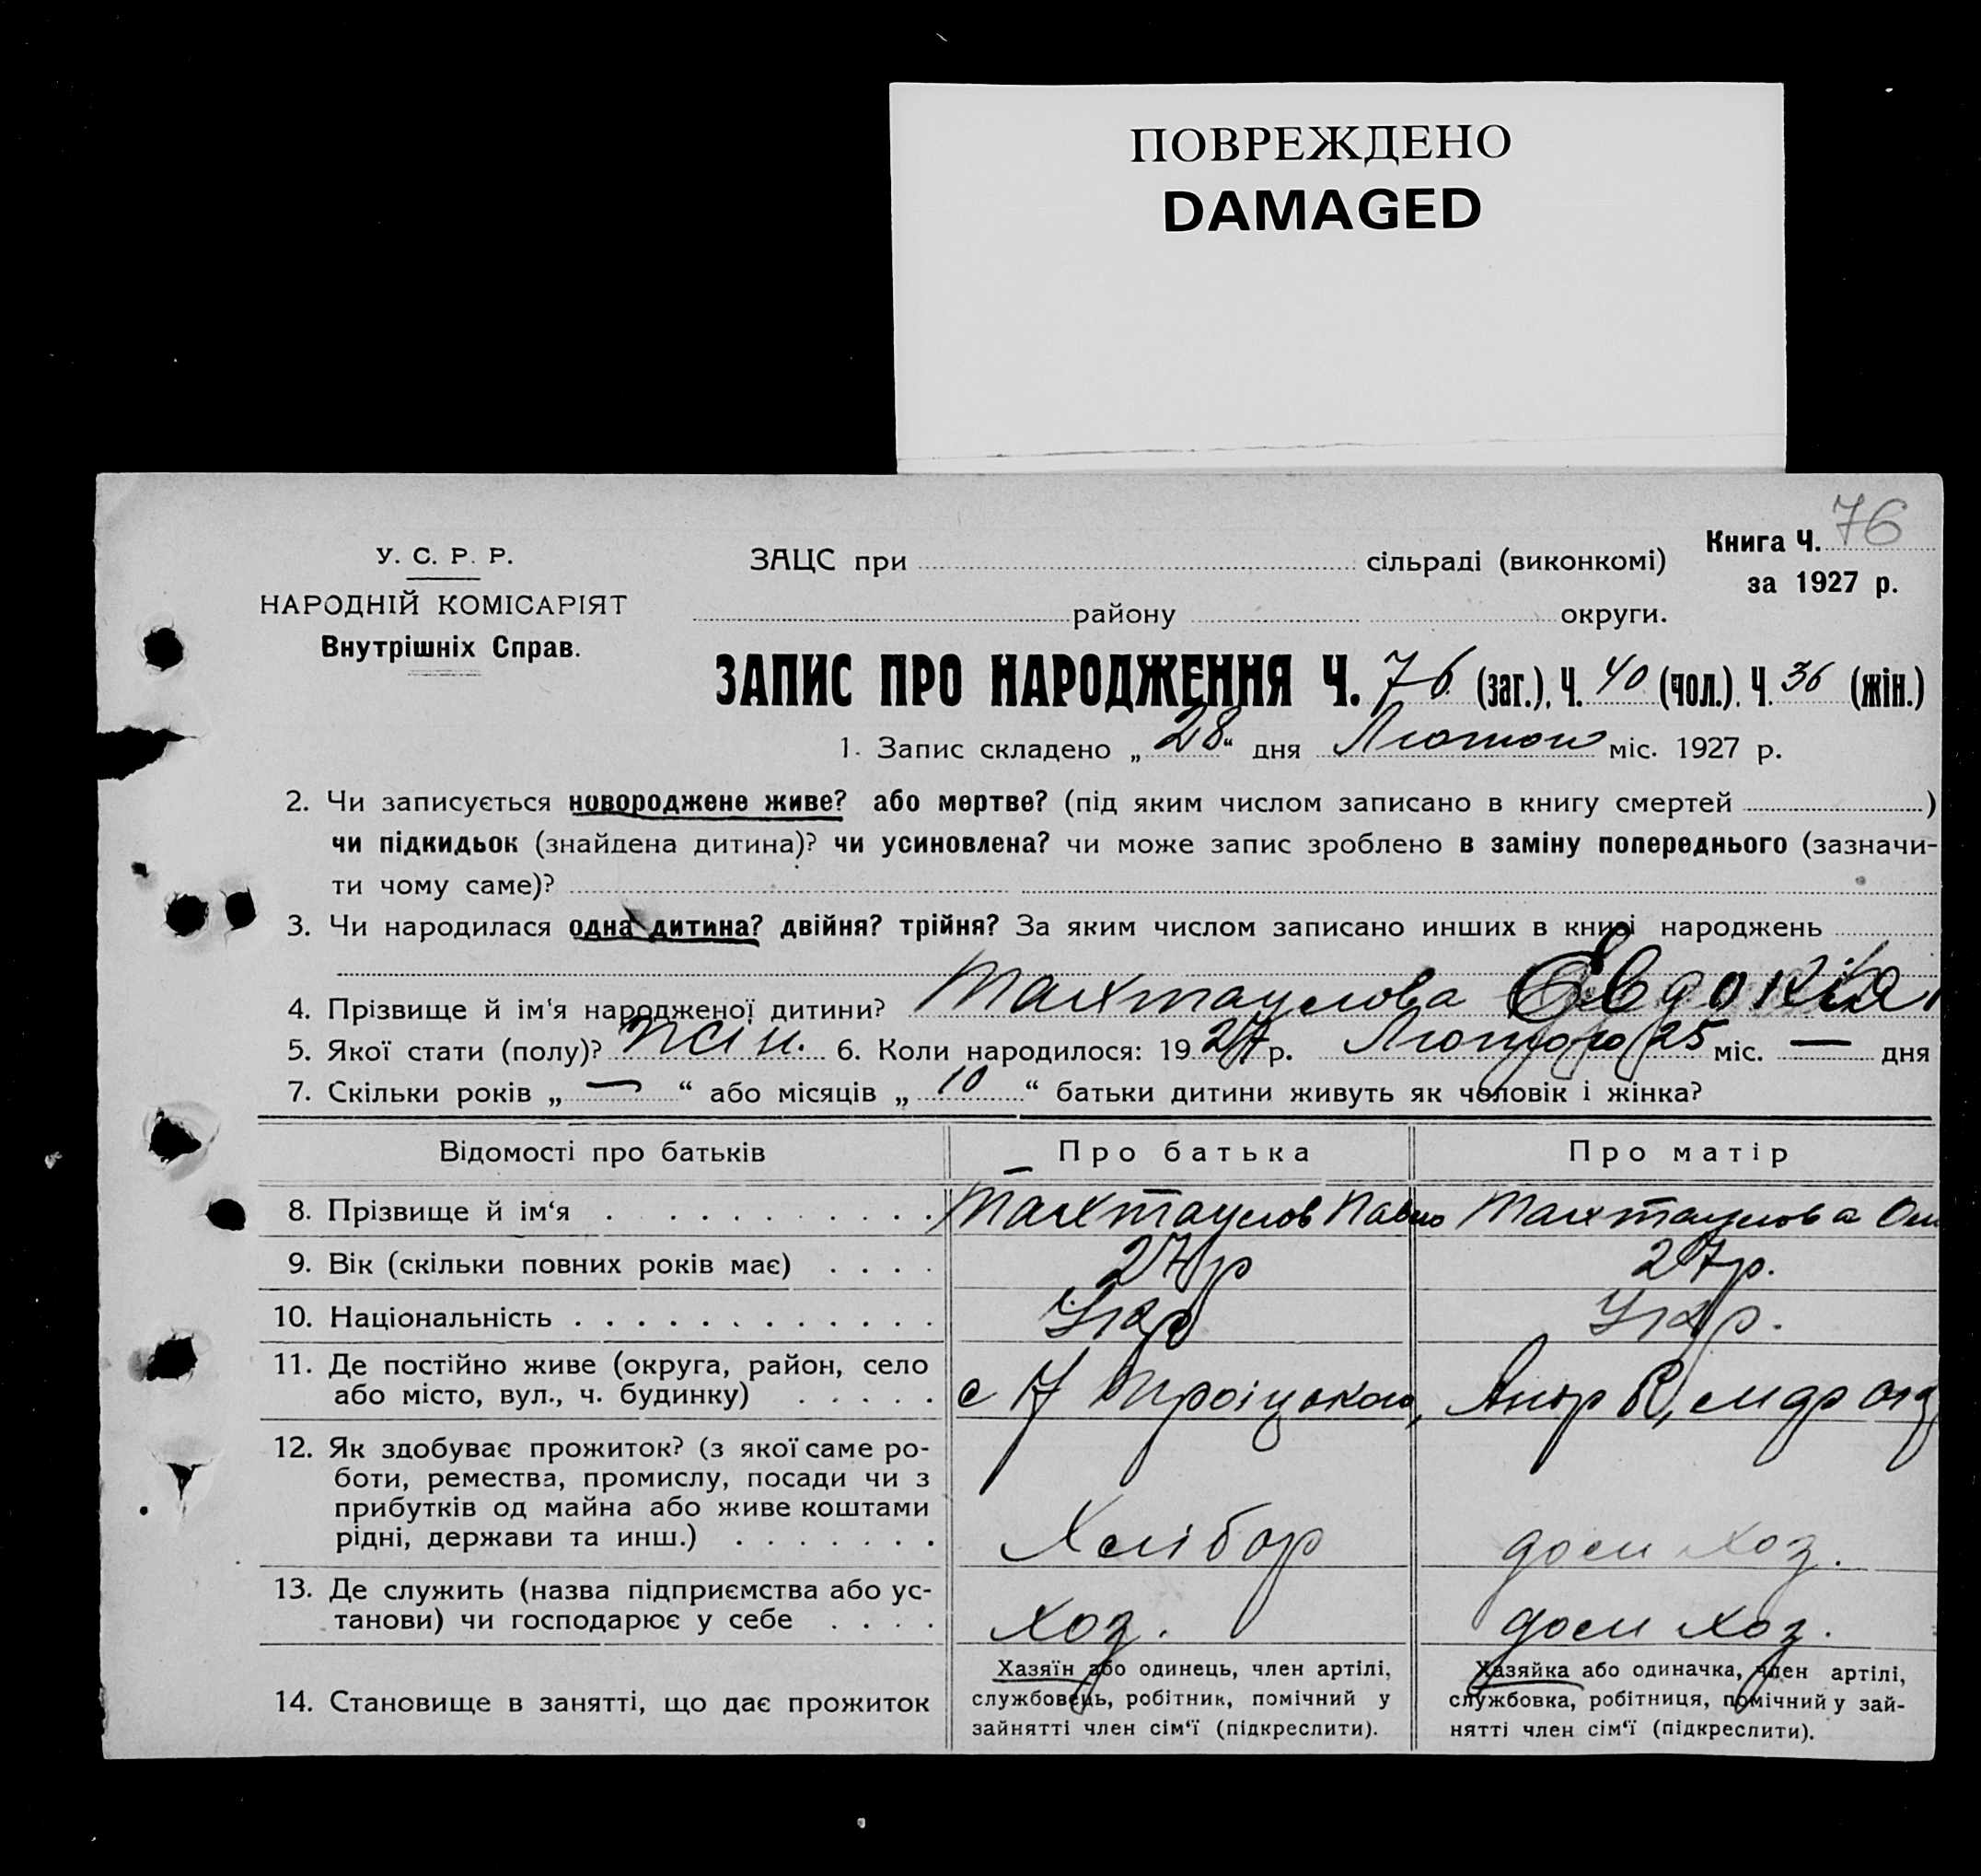 ПОВРЕЖДЕНО
DAMAGED
76
Книга Ч.
за 1927 р.
У. С. Р. Р.
НАРОДНІЙ КОМІСАРІЯТ
Внутрішніх Справ.
ЗАЦС при сільраді (виконкомі)
району округи.
ЗАПИС ПРО НАРОДЖЕННЯ Ч. 76 (заг.), Ч. 40 (чол.). Ч. 36 (жін.)
1. Запис складено „28“ дня Лютого міс. 1927 р.
2. Чи записується новороджене живе? або мертве? (під яким числом записано в книгу смертей )
чи підкидьок (знайдена дитина)? чи усиновлена? чи може запис зроблено в заміну попереднього (зазначи-
ти чому саме)?
3. Чи народилася одна дитина? двійня? трійня? За яким числом записано инших в книзі народжень
4. Прізвище й ім'я народженої дитини? Тахтаулова Євдокія
5. Якої стати (полу)? жін. 6. Коли народилося: 1927 р. Лютого 25 міс. — дня
7. Скільки років „—“ або місяців „10“ батьки дитини живуть як чоловік і жінка?
Відомості про батьків Про батька Про матір
8. Прізвище й ім'я Тахтаулов Павло Тахтаулова
9. Вік (скільки повних років має) 27р 27р.
10. Національність Укр Укр.
11. Де постійно живе (округа, район, село
або місто, вул., ч. будинку) с Троіцького,
12. Як здобуває прожиток? (з якої саме ро-
боти, ремества, промислу, посади чи з
прибутків од майна або живе коштами
рідні, держави та инш.) Хлібор дом хоз.
13. Де служить (назва підприємства або ус-
танови) чи господарює у себе хоз. дом хоз.
14. Становище в занятті, що дає прожиток
Хазяїн або одинець, член артілі,
службовець, робітник, помічний у
зайнятті член сім'ї (підкреслити).
Хазяйка або одиначка, член артілі,
службовка, робітниця, помічний у зай-
нятті член сім'ї (підкреслити).